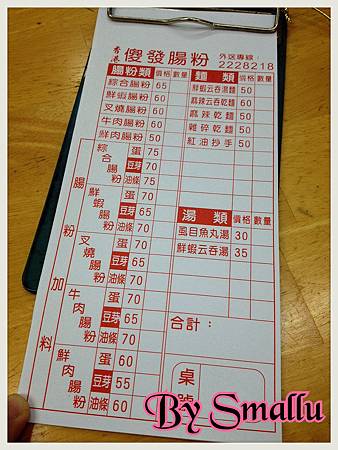 香港 傻發腸粉 外送專線：
2228218
腸粉類 價格 數量
綜合腸粉 65
鮮蝦腸粉 60
叉燒腸粉 60
牛肉腸粉 60
鮮肉腸粉 50
麵類 價格 數量
鮮蝦云吞湯麵 50
麻辣云吞乾麵 60
麻辣乾麵 50
雜碎乾麵 50
紅油抄手 50
腸粉加料
綜合腸粉
蛋 75
豆芽 70
油條 75
鮮蝦腸粉
蛋 70
豆芽 65
油條 70
叉燒腸粉
蛋 70
豆芽 65
油條 70
牛肉腸粉
蛋 70
豆芽 65
油條 70
鮮肉腸粉
蛋 60
豆芽 55
油條 60
湯類 價格 數量
虱目魚丸湯 30
鮮蝦云吞湯 35
合計：
桌號
By Smallu